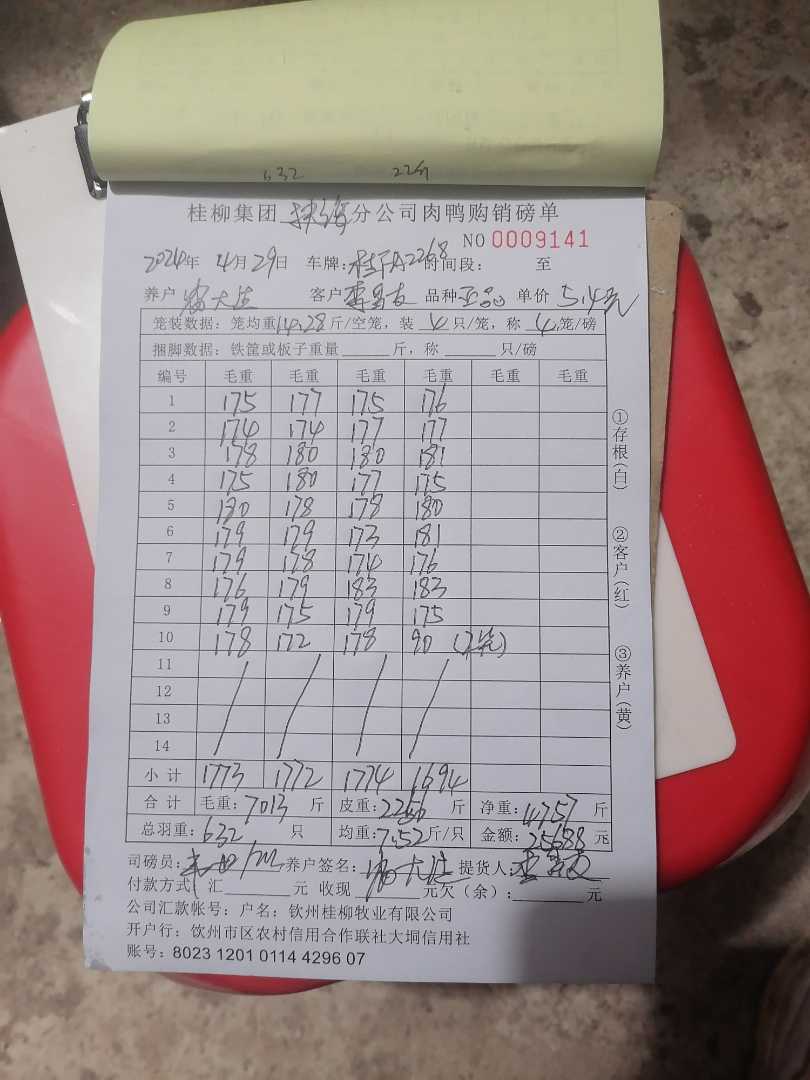 632 22介
桂柳集团 分公司肉鸭购销磅单
NO 0009141
2024年 4月29日 车牌:桂A2268 时间段: 至
养户 客户 品种 正品 单价 5.4元
笼装数据:笼均重14.28斤/空笼,装 4 只/笼,称 4 笼/磅
捆脚数据:铁筐或板子重量 斤,称 只/磅
编号 毛重 毛重 毛重 毛重 毛重 毛重
1 175 177 175 176
2 174 174 177 177
3 178 180 180 181
4 175 180 177 175
5 180 178 178 180
6 179 179 173 181
7 179 178 174 176
8 176 179 183 183
9 179 175 179 175
10 178 172 178 90 (2笼)
11
12
13
14
小计 1773 1772 1774 1694
合计 毛重:7013 斤 皮重:2256 斤 净重:4757 斤
总羽重:632 只 均重:7.52斤/只 金额:25688 元
司磅员: 养户签名: 提货人:
付款方式:汇 元 收现 元欠(余): 元
公司汇款帐号:户名:钦州桂柳牧业有限公司
开户行:钦州市区农村信用合作联社大垌信用社
账号:8023 1201 0114 4296 07
①存根(白)
②客户(红)
③养户(黄)